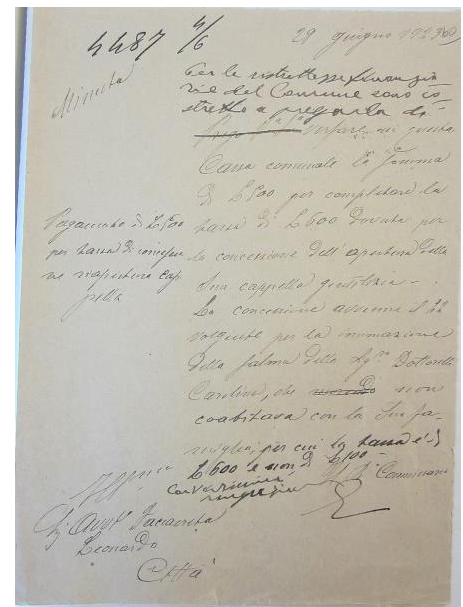 4487 4/6
29 giugno 1923
Minuta
Per le ristrettezze finanzia
rie del Comune sono co
stretto a pregarla di
versare in questa
Cassa comunale la somma
di L 500 per completare la
tassa di L 600 dovuta per
la concessione dell'apertura della
Sua cappella gentilizia.
La concessione avvenne il 22
volgente per la inumazione
della salma della
Carolina, che non
coabitava con la Sua fa-
miglia, per cui la tassa è di
L 600 e non di L 100
Il R° Commissario
Pagamento di L 500
per tassa di
ne riapertura cap
pella
Leonardo
Città